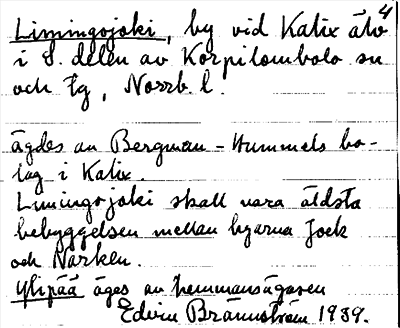 4
Limingojoki, by vid Kalix älv
i S. delen av Korpilombolo sn
och tg, Norrb. l.
ägdes av Bergman-Hummels bo-
lag i Kalix.
Limingojoki skall vara äldsta
bebyggelsen mellan byarna Jock
och Narken.
Ylipää äges av hemmansägaren
Edvin Brännström 1939.